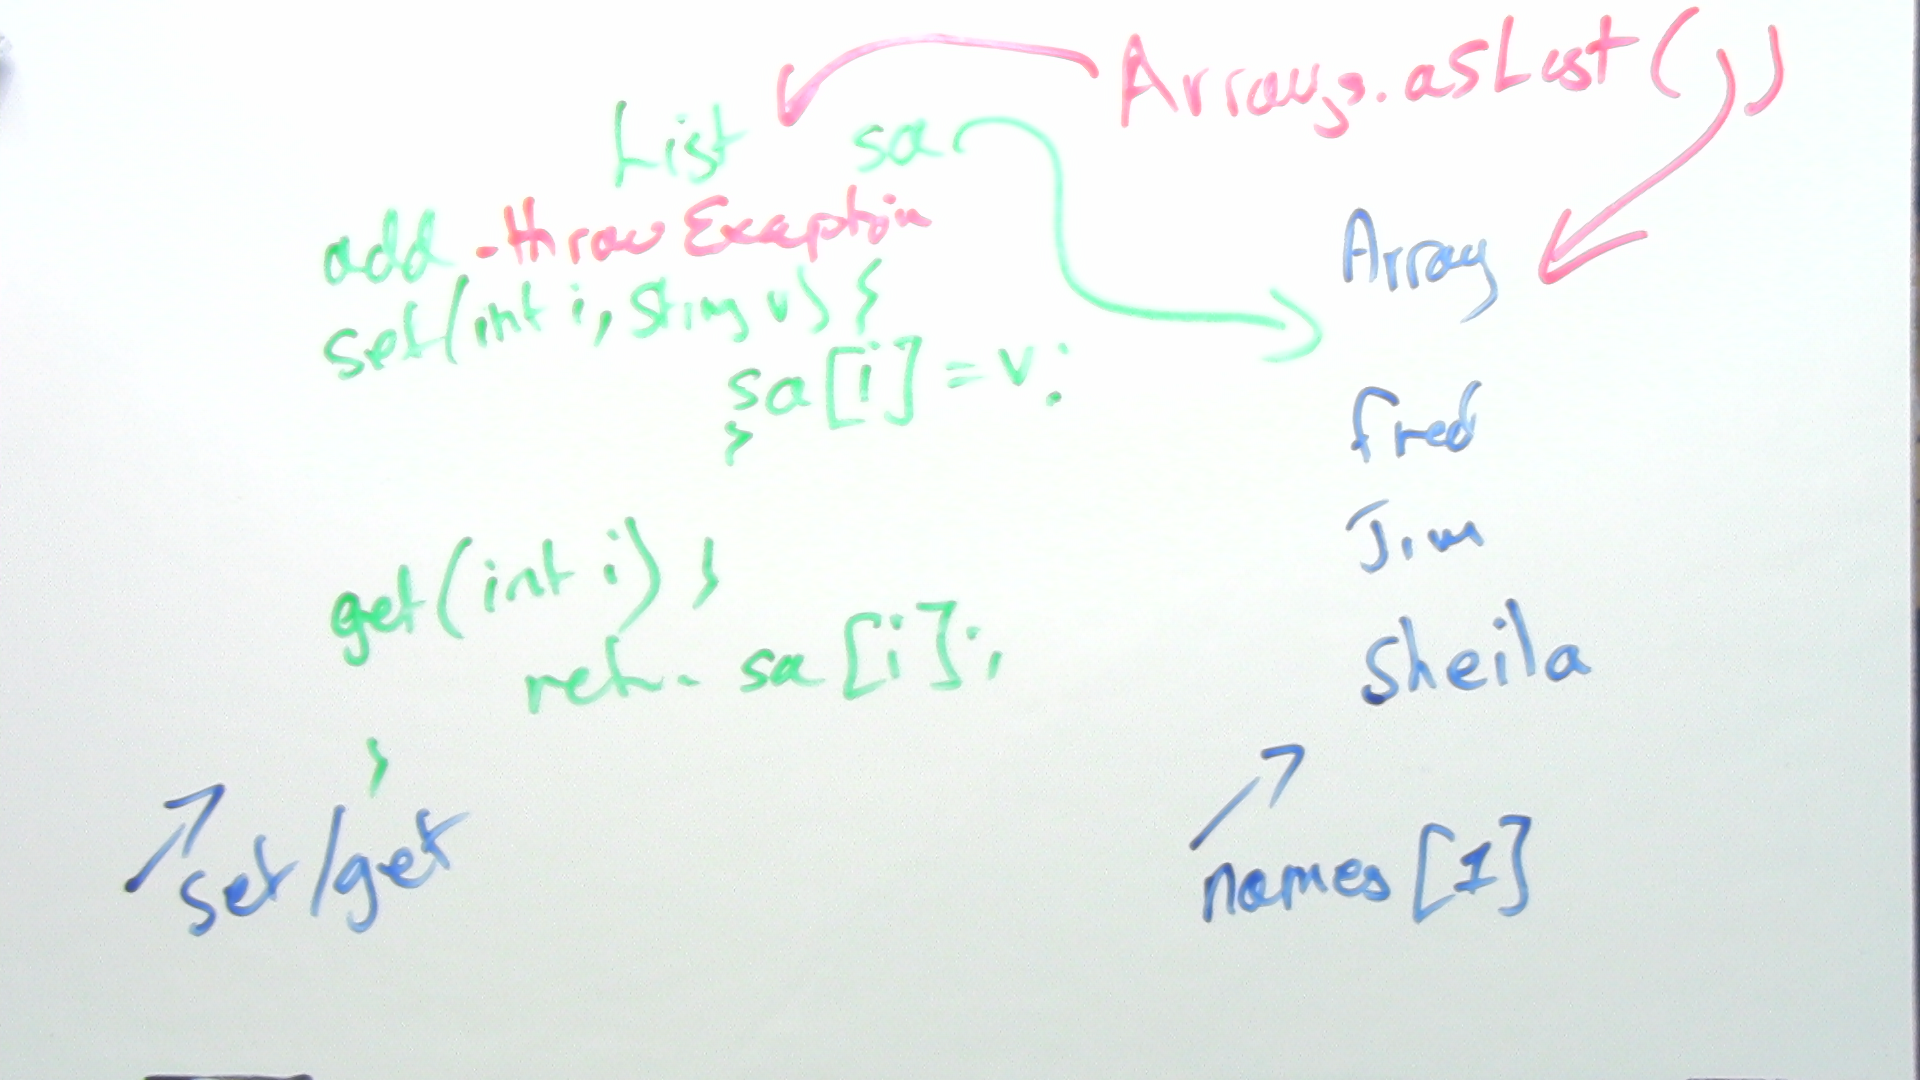 Arrays.asList(,)
List sa
add - throw Exception
set(int i, String v) {
sa[i] = v;
}
get(int i) {
retn. sa[i];
}
set/get
Array
Fred
Jim
Sheila
names[1]